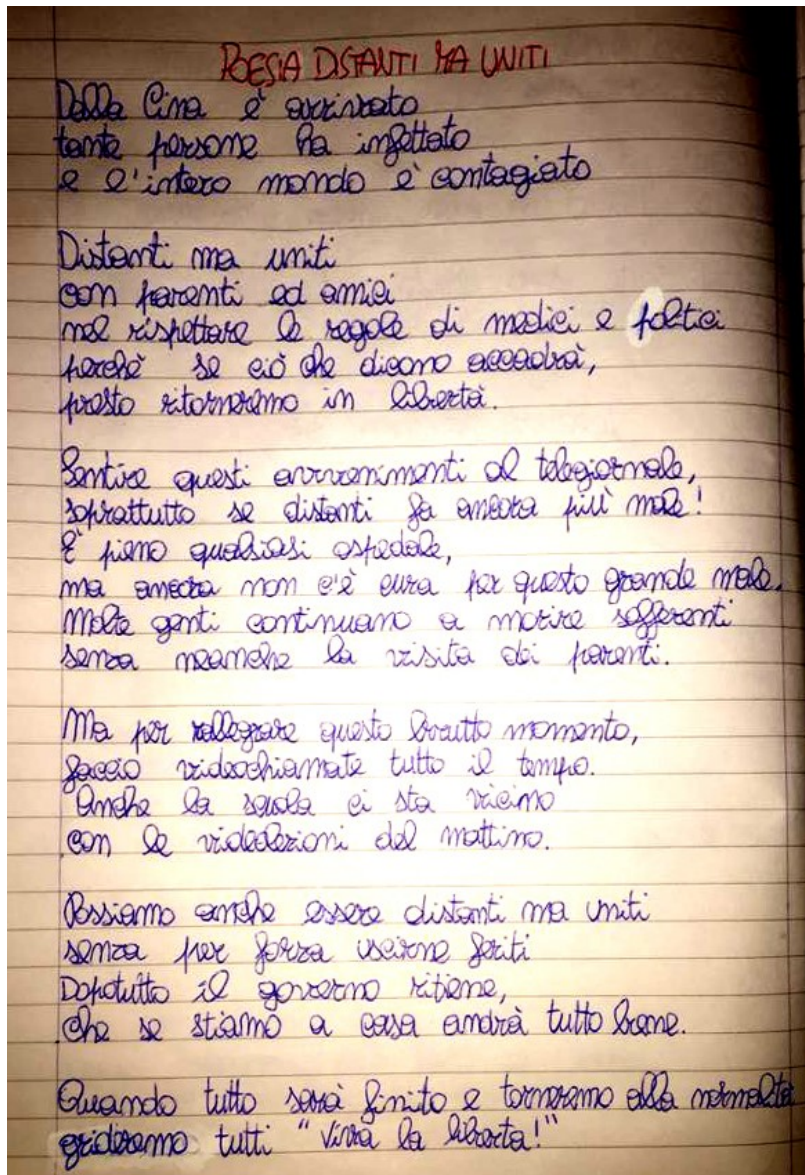 POESIA DISTANTI MA UNITI
Dalla Cina è arrivato
tante persone ha infettato
e l'intero mondo è contagiato
Distanti ma uniti
con parenti ed amici
nel rispettare le regole di medici e politici
perchè se ciò che dicono accadrà,
presto ritorneremo in libertà.
Sentire questi avvenimenti al telegiornale,
soprattutto se distanti fa ancora più male!
È pieno qualsiasi ospedale,
ma ancora non c'è cura per questo grande male.
Molte genti continuano a morire sofferenti
senza neanche la visita dei parenti.
Ma per rallegrare questo brutto momento,
faccio videochiamate tutto il tempo.
Anche la scuola ci sta vicino
con le videolezioni del mattino.
Possiamo anche essere distanti ma uniti
senza per forza uscirne feriti
Dopotutto il governo ritiene,
che se stiamo a casa andrà tutto bene.
Quando tutto sarà finito e torneremo alla normalità
grideremo tutti "Viva la libertà!"